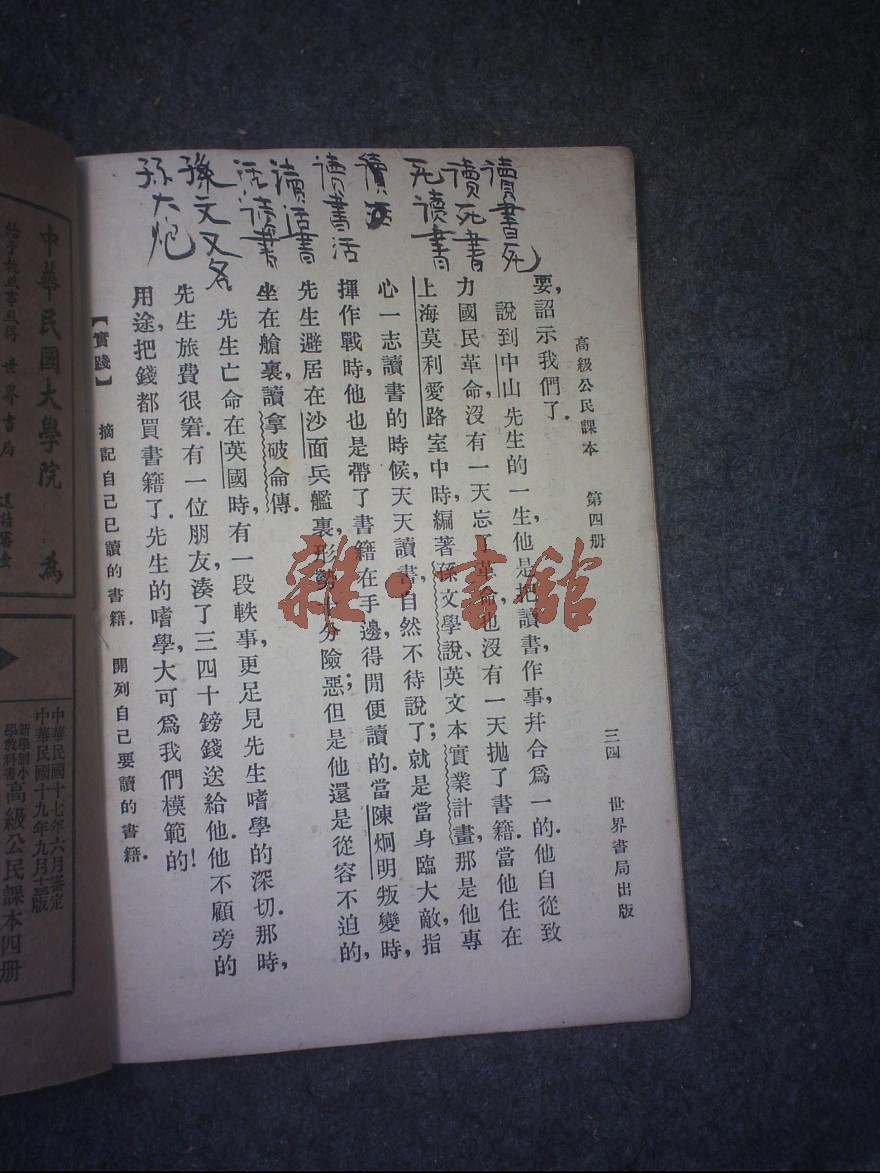 高級公民課本 第四册 三四 世界書局出版
讀書死
讀死書
死讀書
讀活
讀書活
讀活書
活讀書
孫文又名
孫大炮
要，詔示我們了．
說到中山先生的一生，他是把讀書，作事，幷合爲一的．他自從致
力國民革命，沒有一天忘了革命，也沒有一天拋了書籍．當他住在
上海莫利愛路室中時，編著孫文學說、英文本實業計畫，那是他專
心一志讀書的時候，天天讀書，自然不待說了；就是當身臨大敵，指
揮作戰時，他也是帶了書籍在手邊，得閒便讀的．當陳炯明叛變時，
先生避居在沙面兵艦裏，形勢十分險惡；但是他還是從容不迫的，
坐在艙裏，讀拿破侖傳．
先生亡命在英國時，有一段軼事，更足見先生嗜學的深切．那時，
先生旅費很窘．有一位朋友，湊了三四十鎊錢送給他．他不顧旁的
用途，把錢都買書籍了．先生的嗜學，大可爲我們模範的！
【實踐】 摘記自己已讀的書籍． 開列自己要讀的書籍．
雜·書館
中華民國大學院 爲
世界書局
中華民國十七年六月審定
中華民國十九年九月十三版
新學制小學教科書 高級公民課本四册